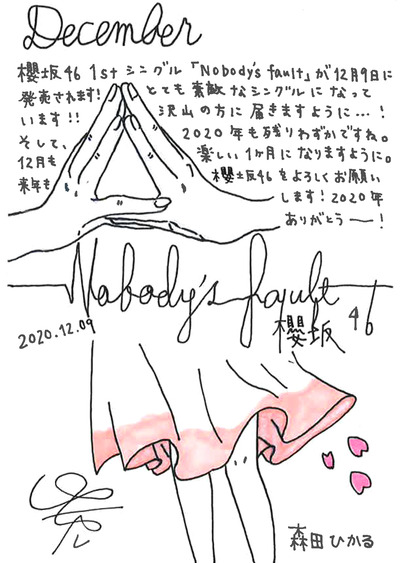 December
櫻坂46 1stシングル「Nobody's fault」が12月9日に
発売されます! とても素敵なシングルになって
います!! 沢山の方に届きますように…!
そして、2020年も残りわずかですね。
12月も楽しい1ヶ月になりますように。
来年も櫻坂46をよろしくお願い
します!2020年
ありがとうー!
Nobody's fault
2020.12.09
櫻坂46
森田ひかる